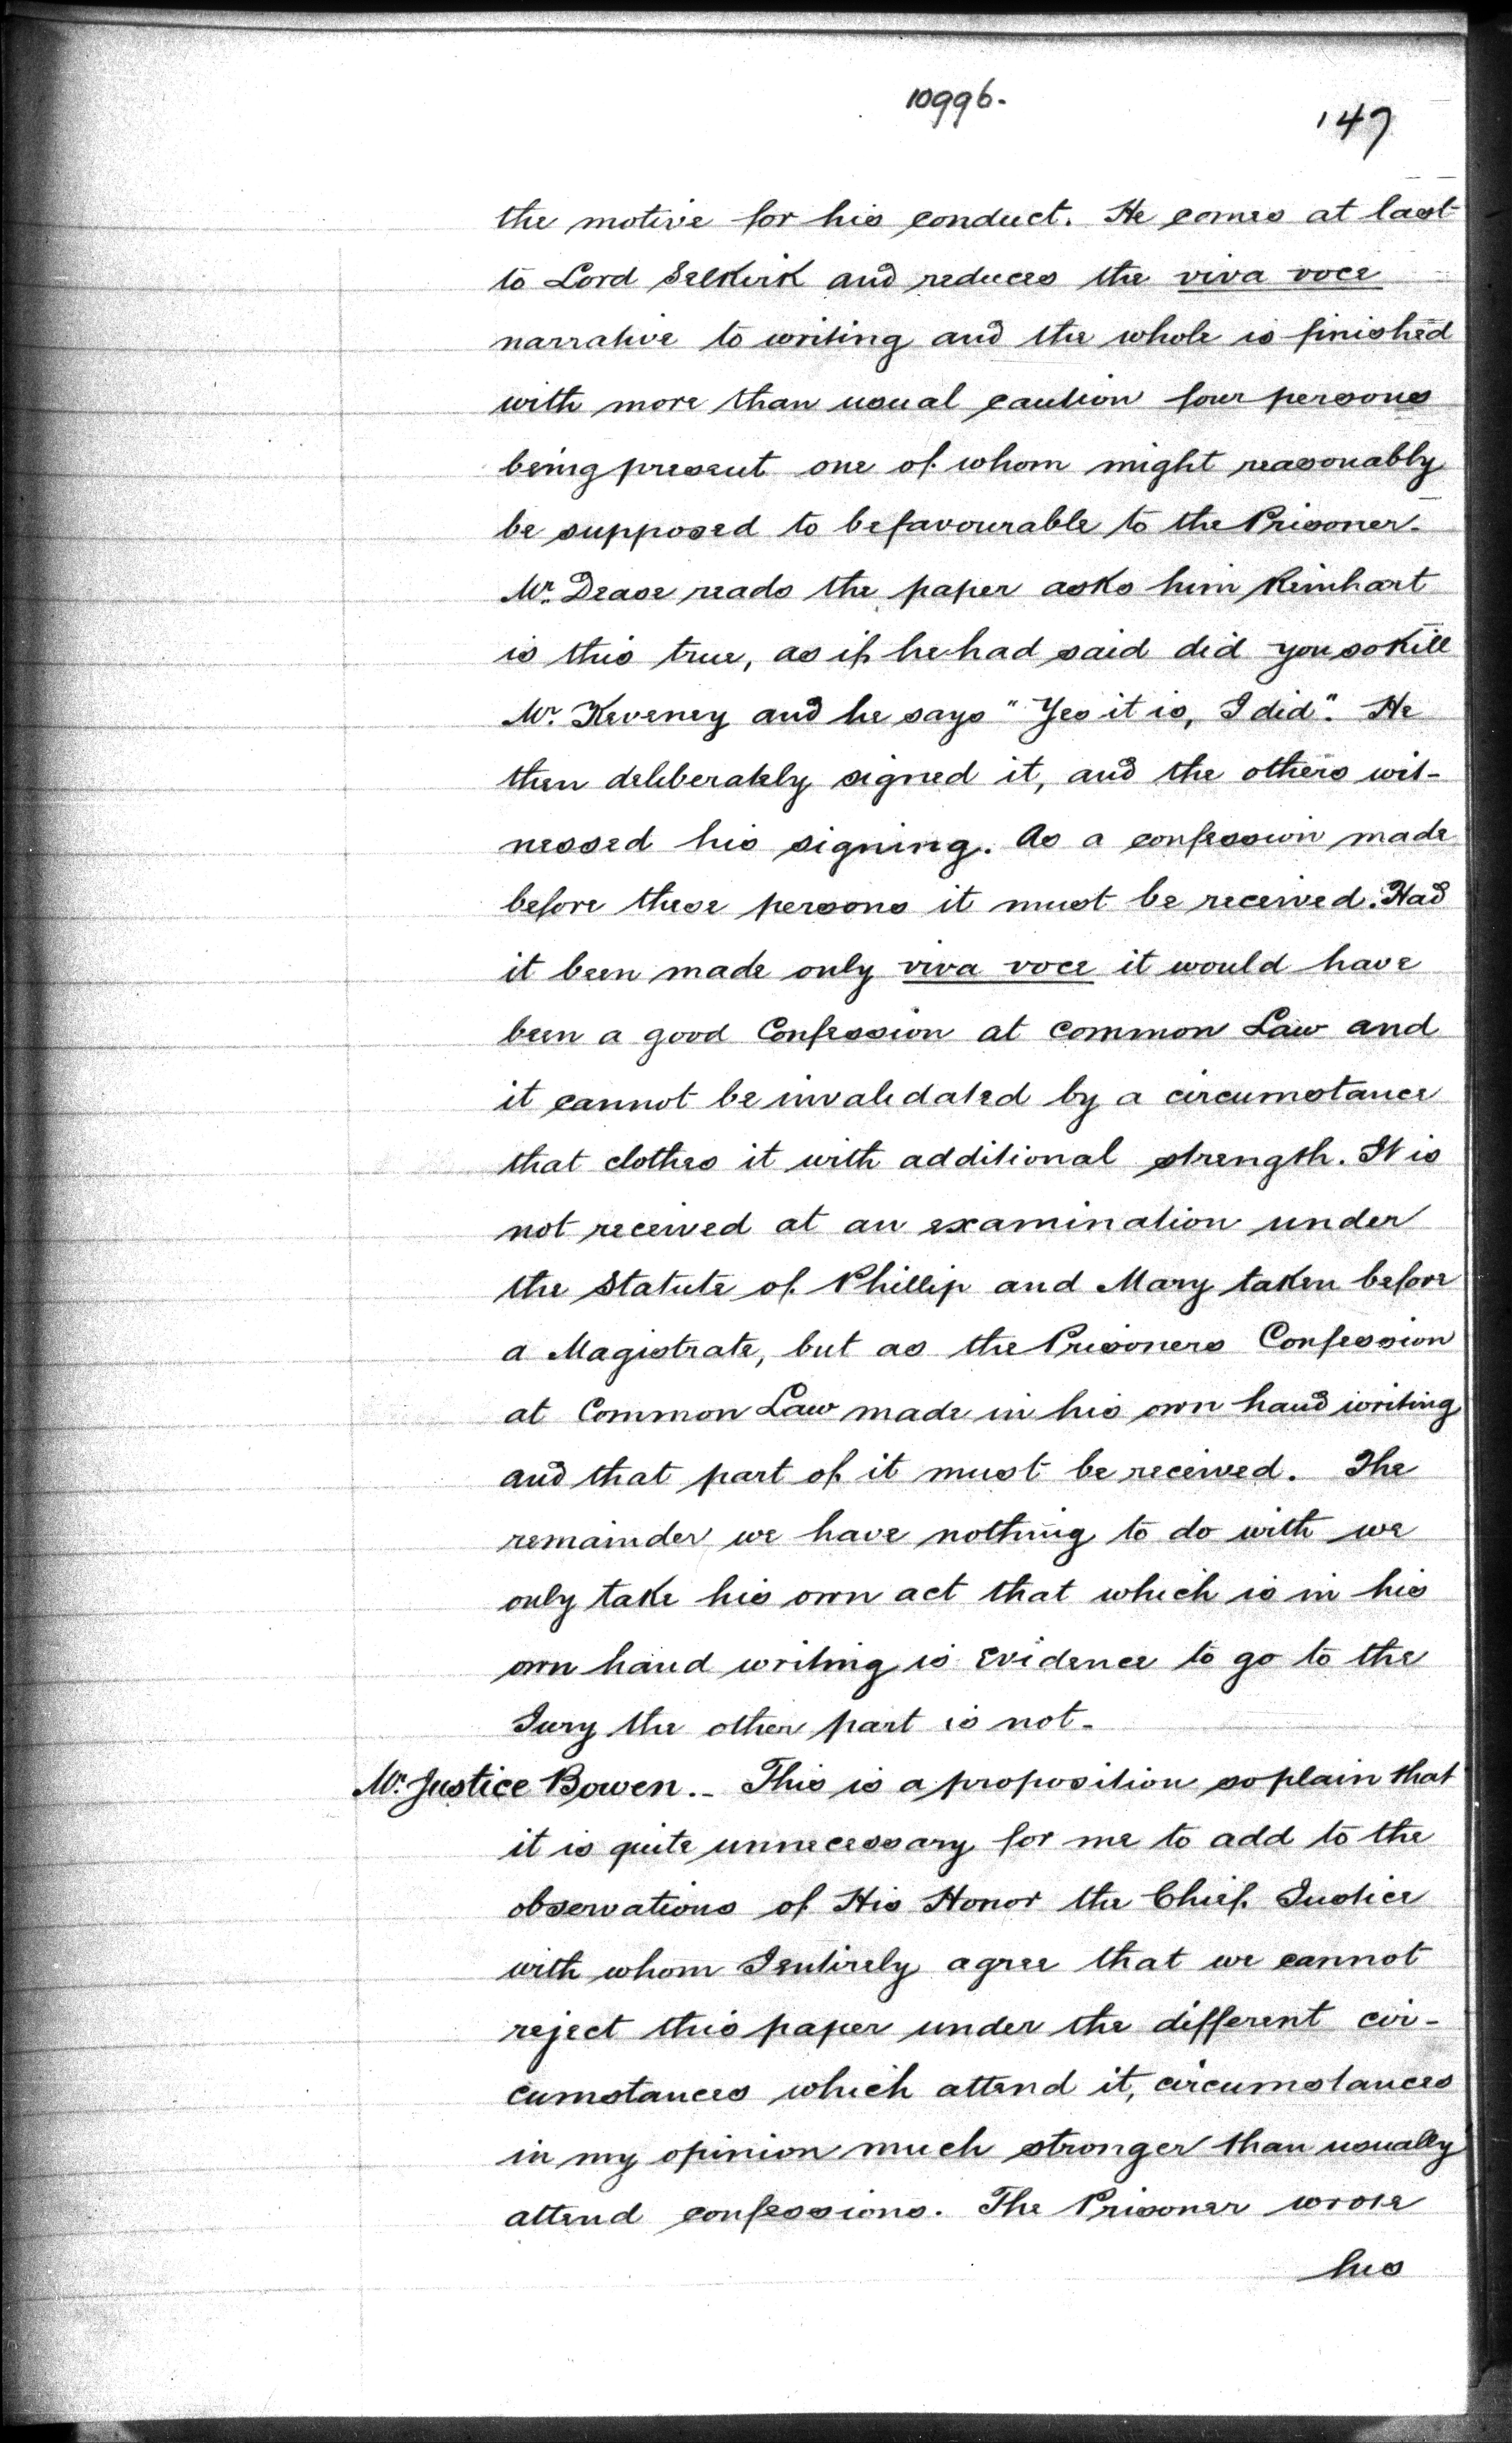 10996.
147
the motive for his conduct. He comes at last
to Lord Selkirk and reduces the viva voce
narrative to writing and the whole is finished
with more than usual caution four persons
being present one of whom might reasonably
be supposed to be favourable to the Prisoner.
Mr. Dease reads the paper asks him Reinhart
is this true, as if he had said did you so kill
Mr. Keveney and he says "Yes it is, I did". He
then deliberately signed it, and the others wit-
nessed his signing. As a confession made
before these persons it must be received. Had
it been made only viva voce it would have
been a good Confession at Common Law and
it cannot be invalidated by a circumstance
that clothes it with additional strength. It is
not received at an examination under
the Statute of Phillip and Mary taken before
a Magistrate, but as the Prisoners Confession
at Common Law made in his own hand writing
and that part of it must be received. The
remainder we have nothing to do with we
only take his own act that which is in his
own hand writing is Evidence to go to the
Jury the other part is not.
Mr. Justice Bowen.- This is a proposition so plain that
it is quite unnecessary for me to add to the
observations of His Honor the Chief Justice
with whom I entirely agree that we cannot
reject this paper under the different cir-
cumstances which attend it, circumstances
in my opinion much stronger than usually
attend confessions. The Prisoner wrote
his